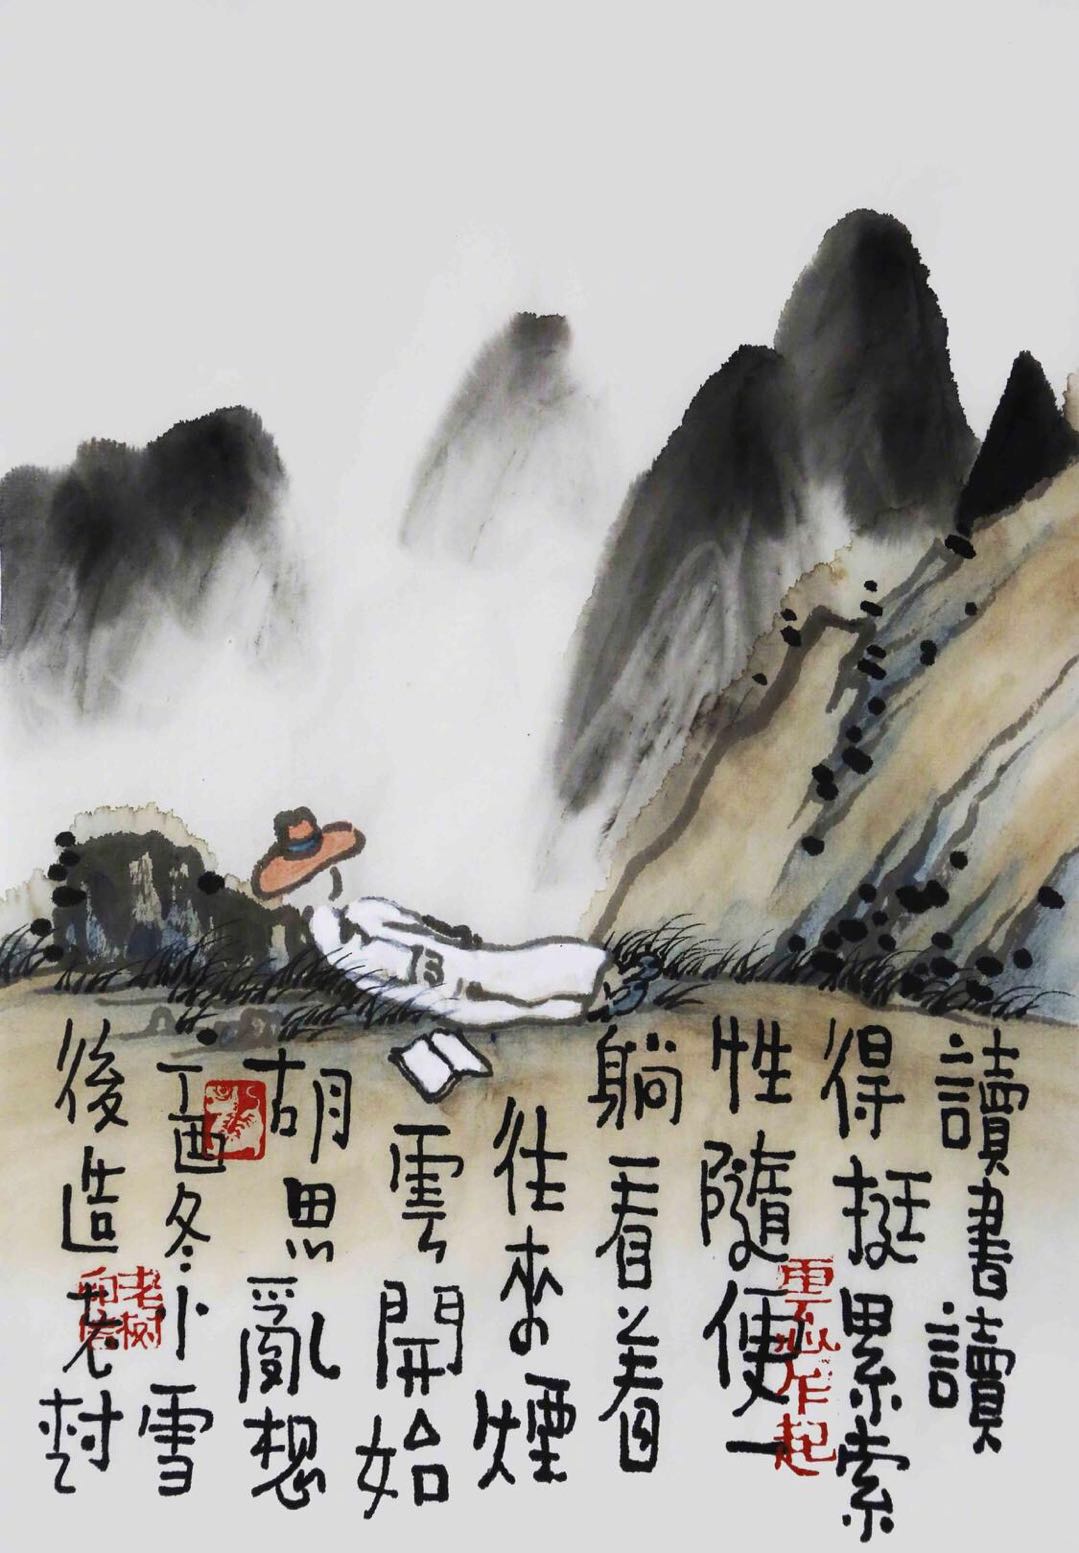 讀書讀
得挺累索
性隨便一
躺看着
往來煙
雲開始
胡思亂想
丁酉冬小雪
後造老樹
老树